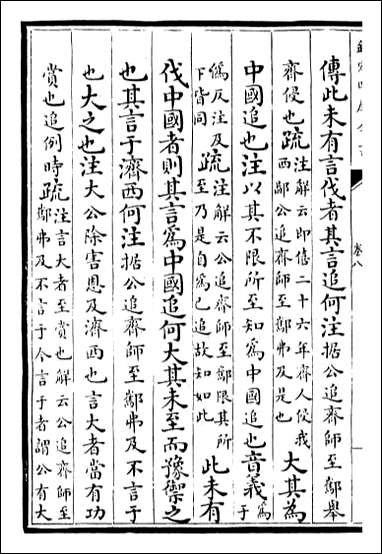 卷八
傳此未有言伐者其言追何注据公追齊師至酅舉
齊侵也疏注解云即僖二十六年齊人侵我西鄙公追齊師至酅弗及是也大其為
中國追也注以其不限所至知為中國追也音義為于
偽反注及下皆同疏注解云公追齊師至酅限其所至乃是自為己追故知如此此未有
伐中國者則其言為中國追何大其未至而豫禦之
也其言于濟西何注据公追齊師至酅弗及不言于
也大之也注大公除害恩及濟西也言大者當有功
賞也追例時疏注言大者至賞也解云公追齊師至酅弗及不言于今言于者謂公有大